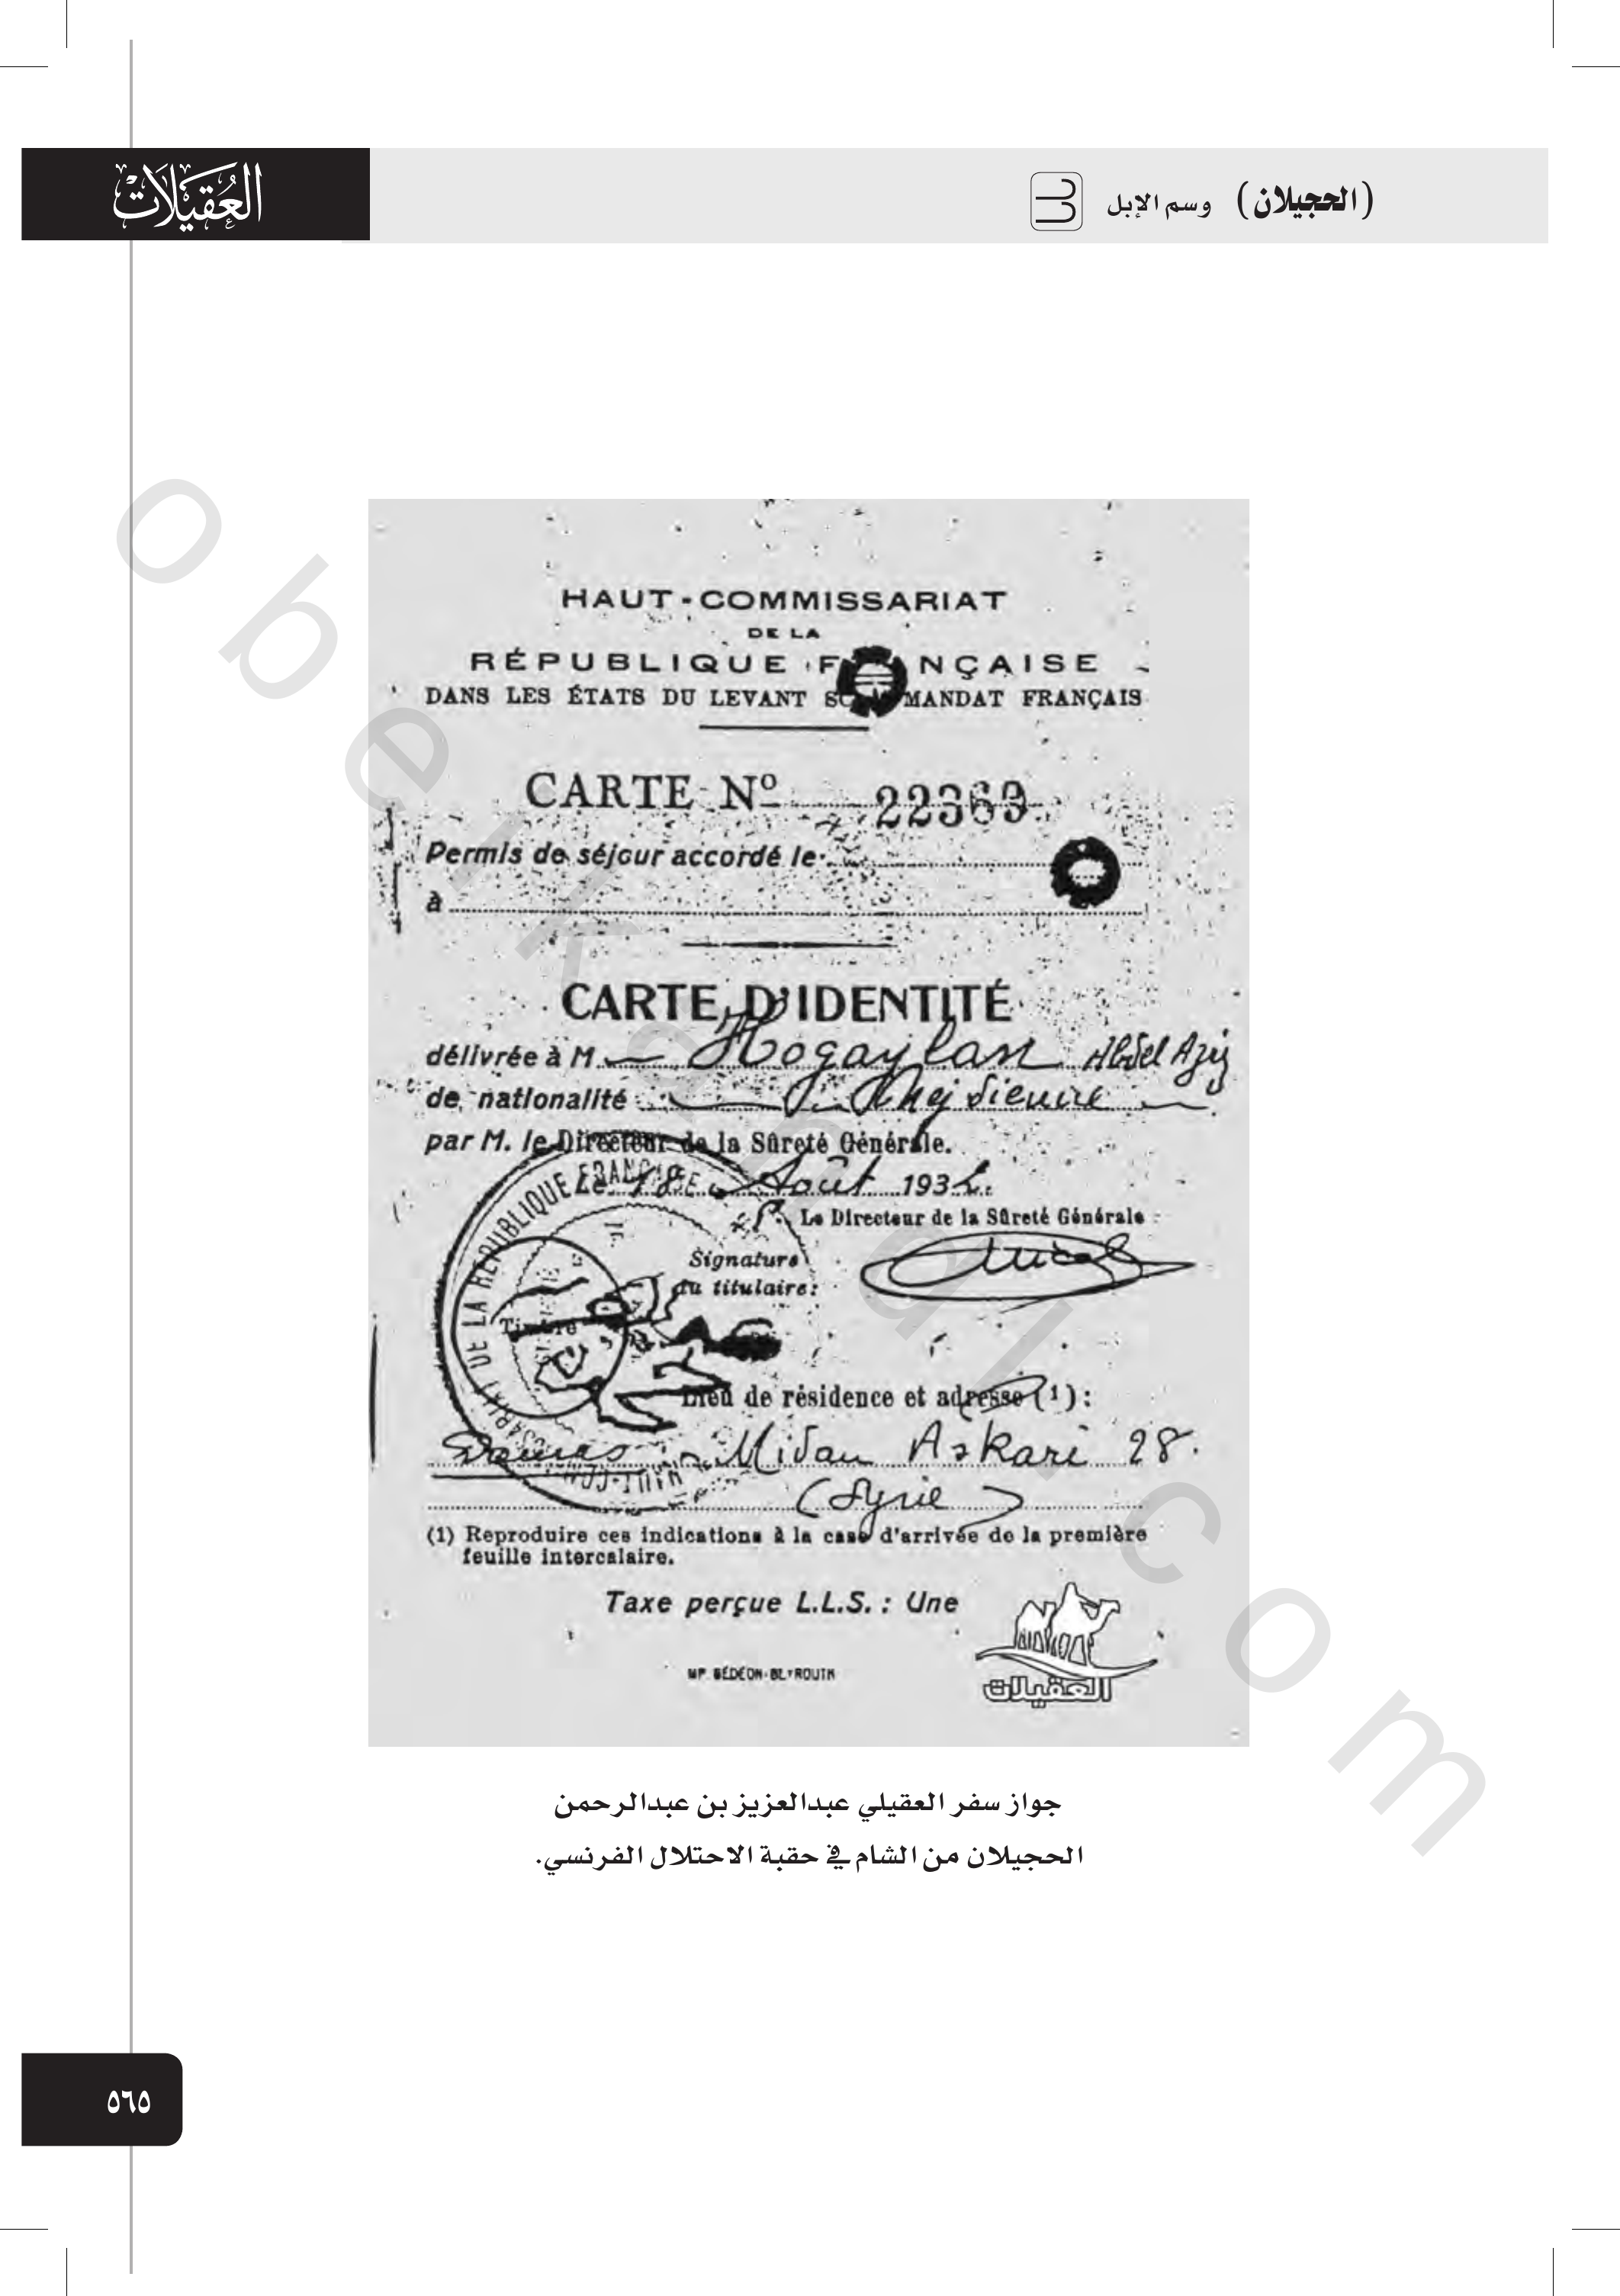 (الحجيلان) وسم الإبل
العقيلات
HAUT-COMMISSARIAT
DE LA
RÉPUBLIQUE F NÇAISE
DANS LES ÉTATS DU LEVANT MANDAT FRANÇAIS
CARTE Nº 22369
Permis de séjour accordé le
à
CARTE D'IDENTITÉ
délivrée à M Hogaylan Abdel Aziz
de nationalité
par M. le Directeur de la Sûreté Générale.
Le 18 Août 193
Le Directeur de la Sûreté Générale
Signature
du titulaire:
Timbre
DE LA RÉPUBLIQUE FRANÇAISE
Lieu de résidence et adresse (1) :
Damas Midan Askari 28.
(Syrie)
(1) Reproduire ces indications à la case d'arrivée de la première
feuille intercalaire.
Taxe perçue L.L.S. : Une
العقيلات
جواز سفر العقيلي عبدالعزيز بن عبدالرحمن
الحجيلان من الشام في حقبة الاحتلال الفرنسي.
٥٦٥
obeikandl.com